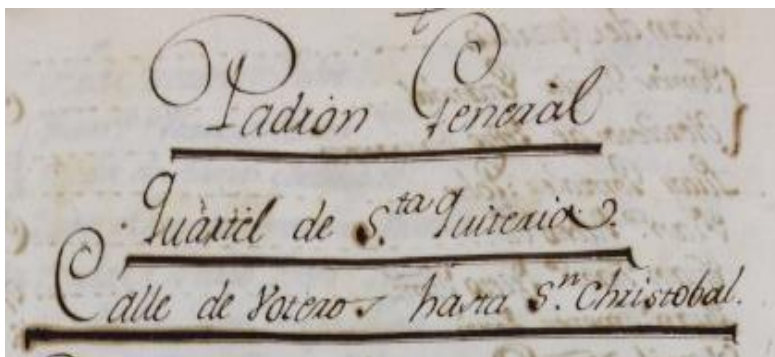 Padron General
Quàrtèl de S.ta Quiteria.
Calle de Voteros hasta S.n Christobal.